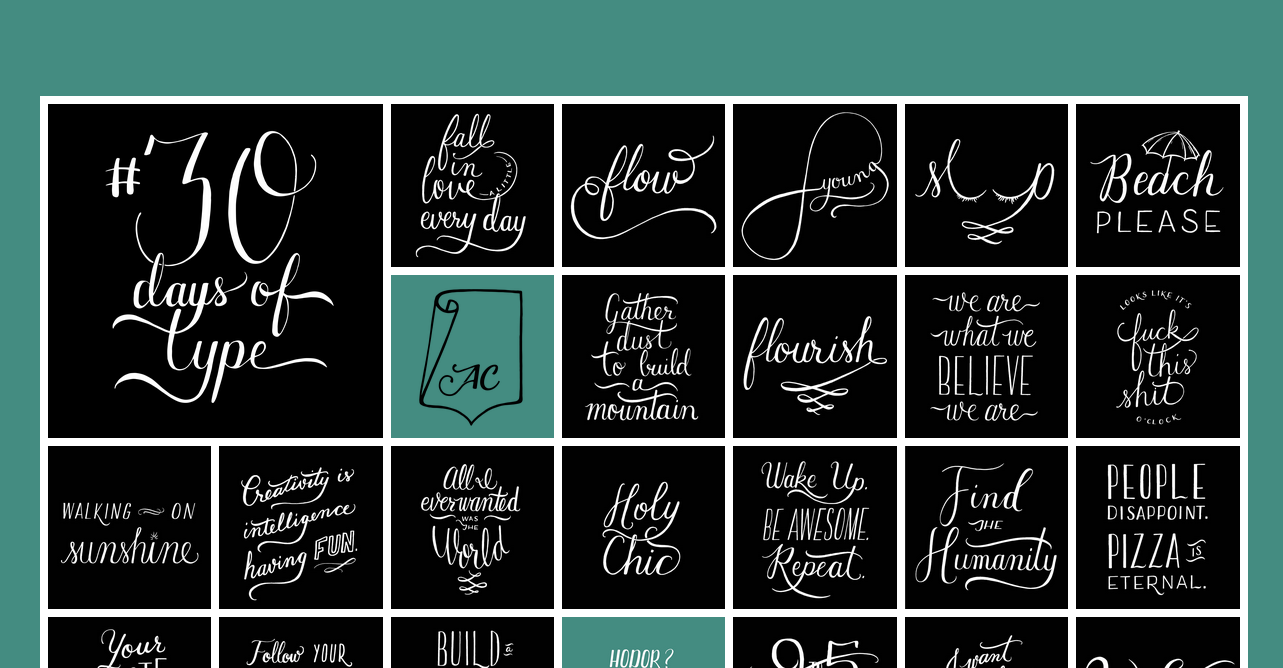 #30
days of
type
fall
in
love
A LITTLE
every day
flow
young
sleep
Beach
PLEASE
AC
Gather
dust
to build
a
mountain
flourish
we are
what we
BELIEVE
we are
LOOKS LIKE IT'S
fuck
this
shit
O'CLOCK
WALKING ON
sunshine
Creativity is
intelligence
having FUN.
All I
ever wanted
WAS
THE
World
Holy
Chic
Wake Up.
BE AWESOME.
Repeat.
Find
THE
Humanity
PEOPLE
DISAPPOINT.
PIZZA IS
ETERNAL.
Your
Follow YOUR
BUILD a
HODOR?
9 to 5
I want